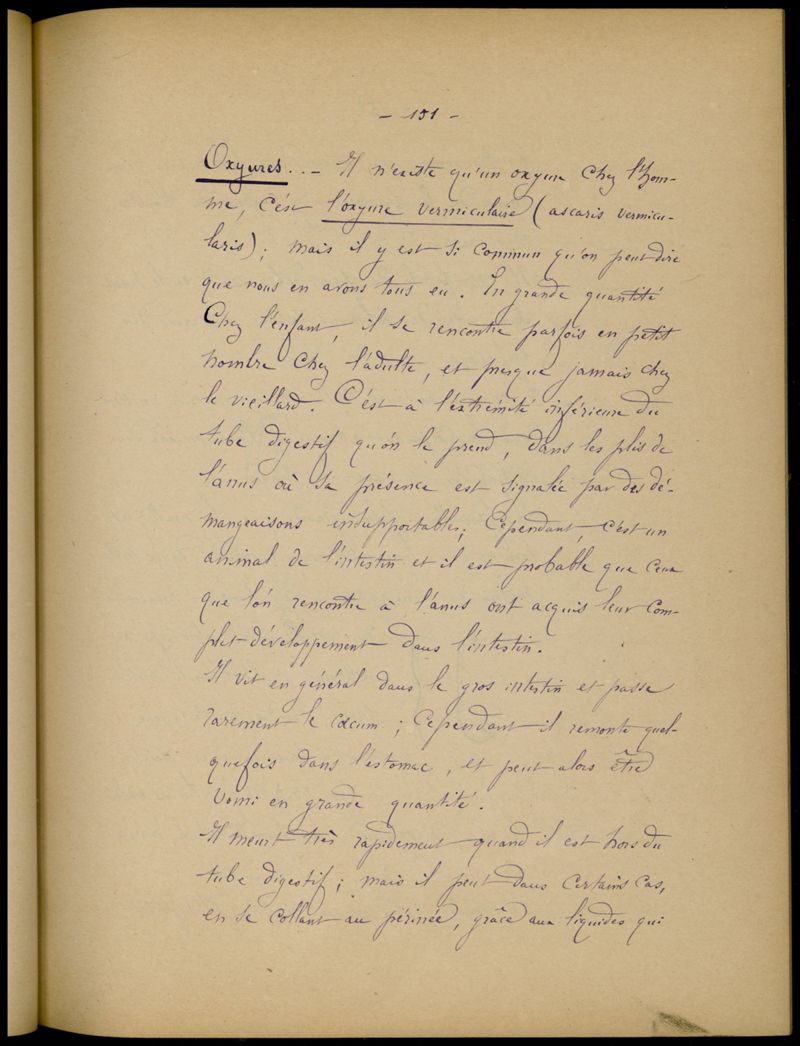 - 151 -
Oxyures.. - Il n'existe qu'un oxyure chez l'hom-
me, c'est l'oxyure vermiculaire (ascaris vermicu-
laris); mais il y est si commun qu'on peut dire
que nous en avons tous eu. En grande quantité
chez l'enfant, il se rencontre parfois en petit
nombre chez l'adulte, et presque jamais chez
le vieillard. C'est à l'extrémité inférieure du
tube digestif qu'on le prend, dans les plis de
l'anus où sa présence est signalée par des dé-
mangeaisons insupportables; cependant, c'est un
animal de l'intestin et il est probable que ceux
que l'on rencontre à l'anus ont acquis leur com-
plet développement dans l'intestin.
Il vit en général dans le gros intestin et passe
rarement le cæcum; cependant il remonte quel-
quefois dans l'estomac, et peut alors être
vomi en grande quantité.
Il meurt très rapidement quand il est hors du
tube digestif; mais il peut dans certains cas,
en se collant au périnée, grâce aux liquides qui